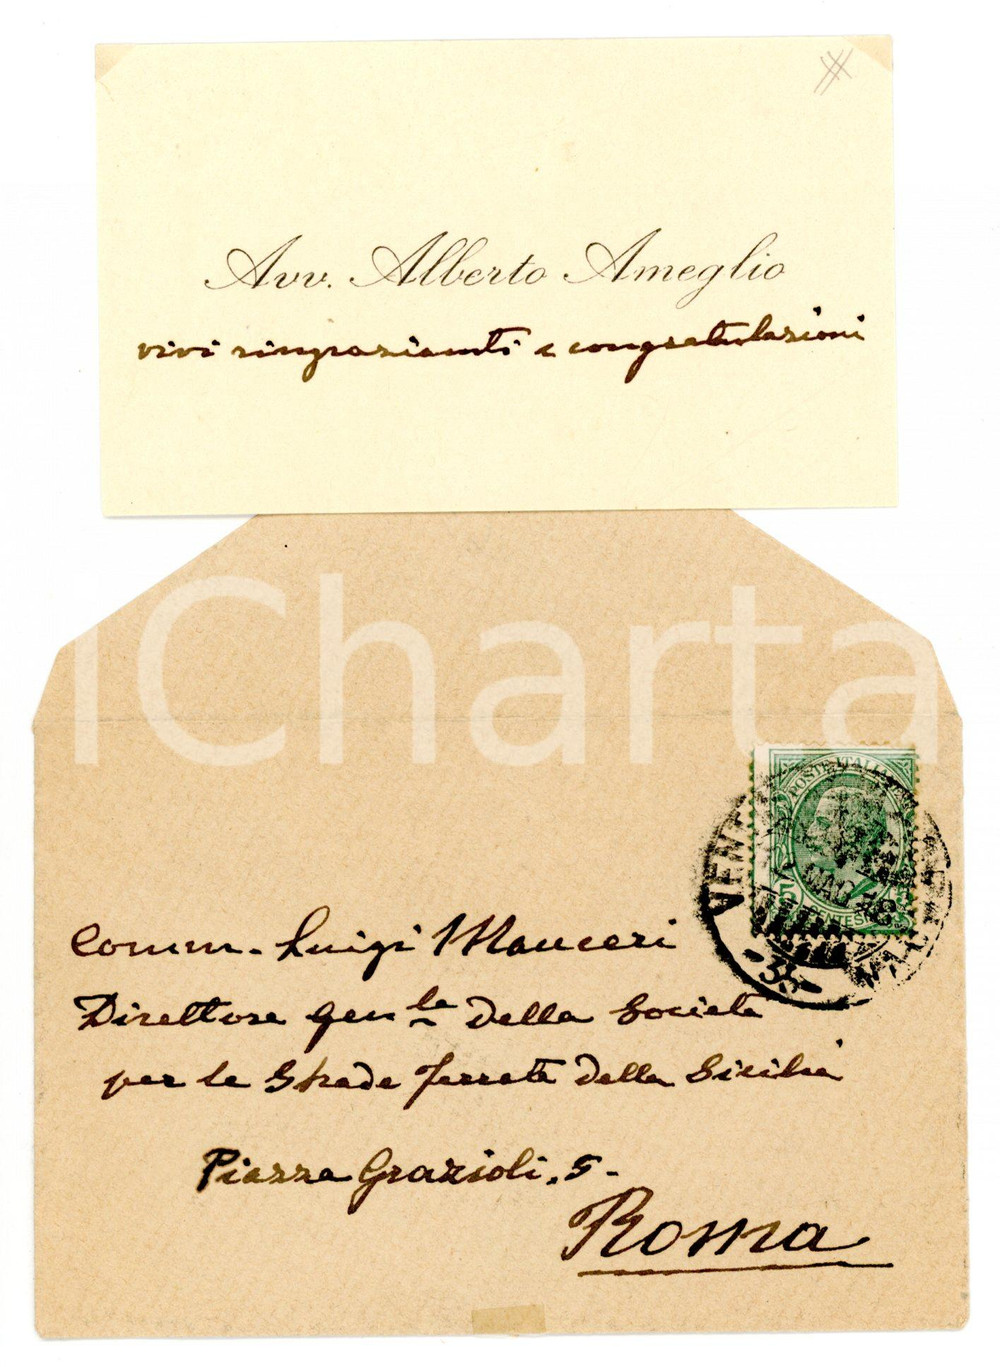 Avv. Alberto Ameglio
vivi ringraziamti e congratulazioni
iCharta
POSTE ITALIANE
5
CENTESIMI
VENT
-35-
Comm. Luigi Mauceri
Direttore genle della Società
per le Strade Ferrate della Sicilia
Piazza Grazioli. 5-
Roma